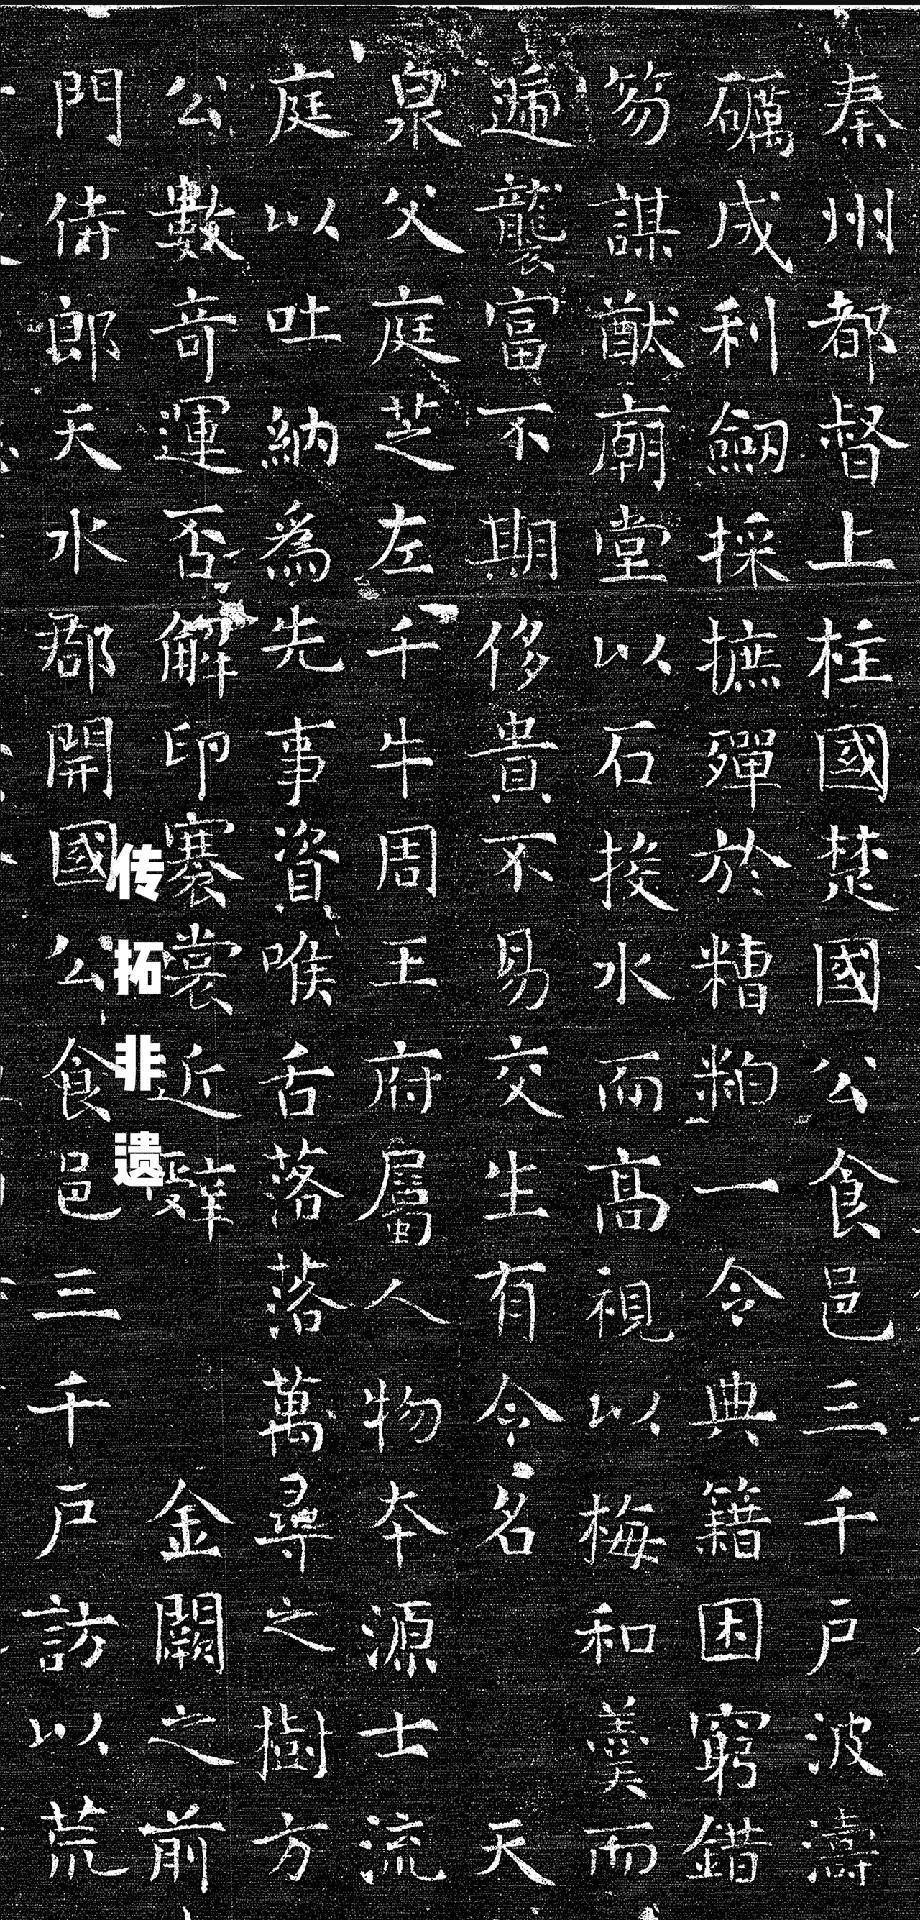 秦州都督上柱國楚國公食邑三千戶波濤
礪成利劒採摭殫於糟粕一令典籍困窮錯
笏謀猷廟堂以石投水而高視以梅和羹而
遞襲富不期侈貴不易交生有令名 天
泉父庭芝左千牛周王府屬人物本源士流
庭以吐納爲先事資喉舌落落萬尋之樹方
公數奇運否解印褰裳近 金闕之前
門侍郎天水郡開國公食邑三千戶訪以荒
传拓非遗